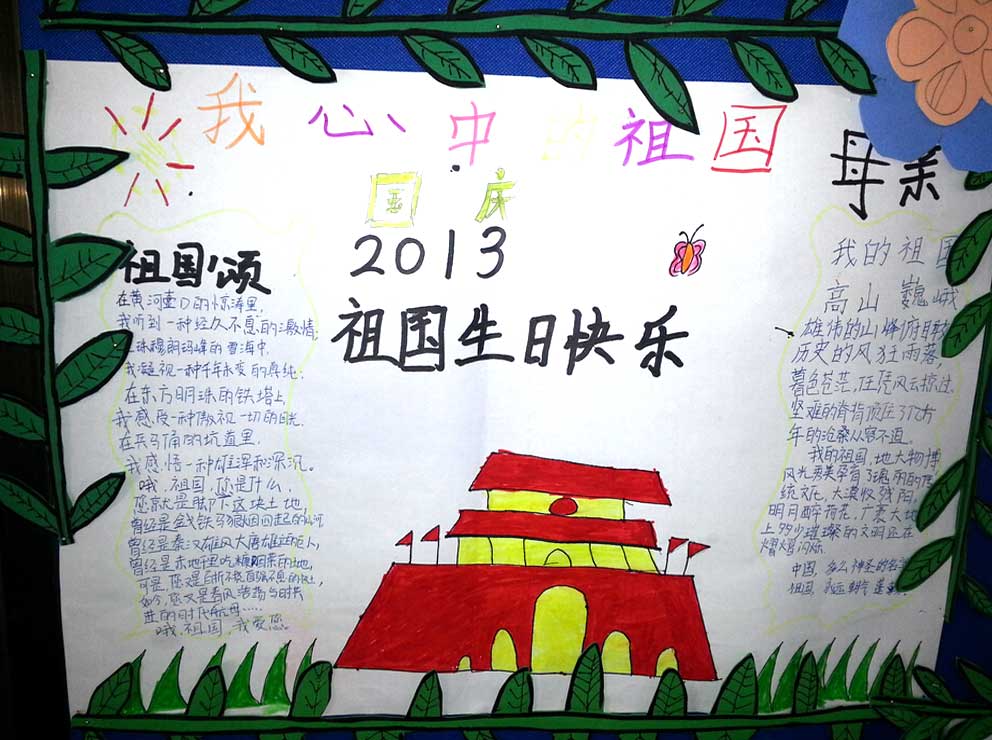 我心中的祖国
母亲
国庆
2013
祖国生日快乐
祖国颂
在黄河壶口的惊涛里,
我听到一种经久不息的激情,
在珠穆朗玛峰的雪海中,
我凝视一种千年未变的真纯;
在东方明珠的铁塔上,
我感受一种傲视一切的目光,
在兵马俑的坑道里,
我感悟一种雄浑和深沉。
哦,祖国,您是什么,
您就是脚下这块土地,
曾经是金戈铁马狼烟四起的山河
曾经是秦汉雄风大唐雄运的巨人,
曾经是赤地千里吃糠咽菜的土地,
可是,您又是百折不挠自强不息的
如今,您又是春风浩荡与时共
进的时代航母……
哦,祖国,我爱您
我的祖国
高山巍峨
雄伟的山峰俯瞰
历史的风狂雨落,
暮色苍茫,任凭风云掠过.
坚难的脊背顶住了亿万
年的沧桑从容不迫。
我的祖国,地大物博
风光秀美孕育了瑰丽的传
统文化,大漠收残阳,
明月醉荷花,广袤大地
上多少璀璨的文明还在
熠熠闪烁
中国,多么神圣的名
祖国,永远朝气蓬勃